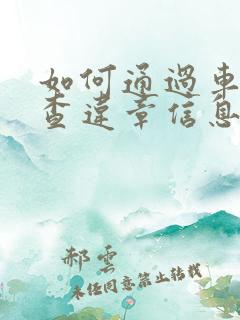 如何通過車
查違章信息
郝雲
未經同意禁止轉載